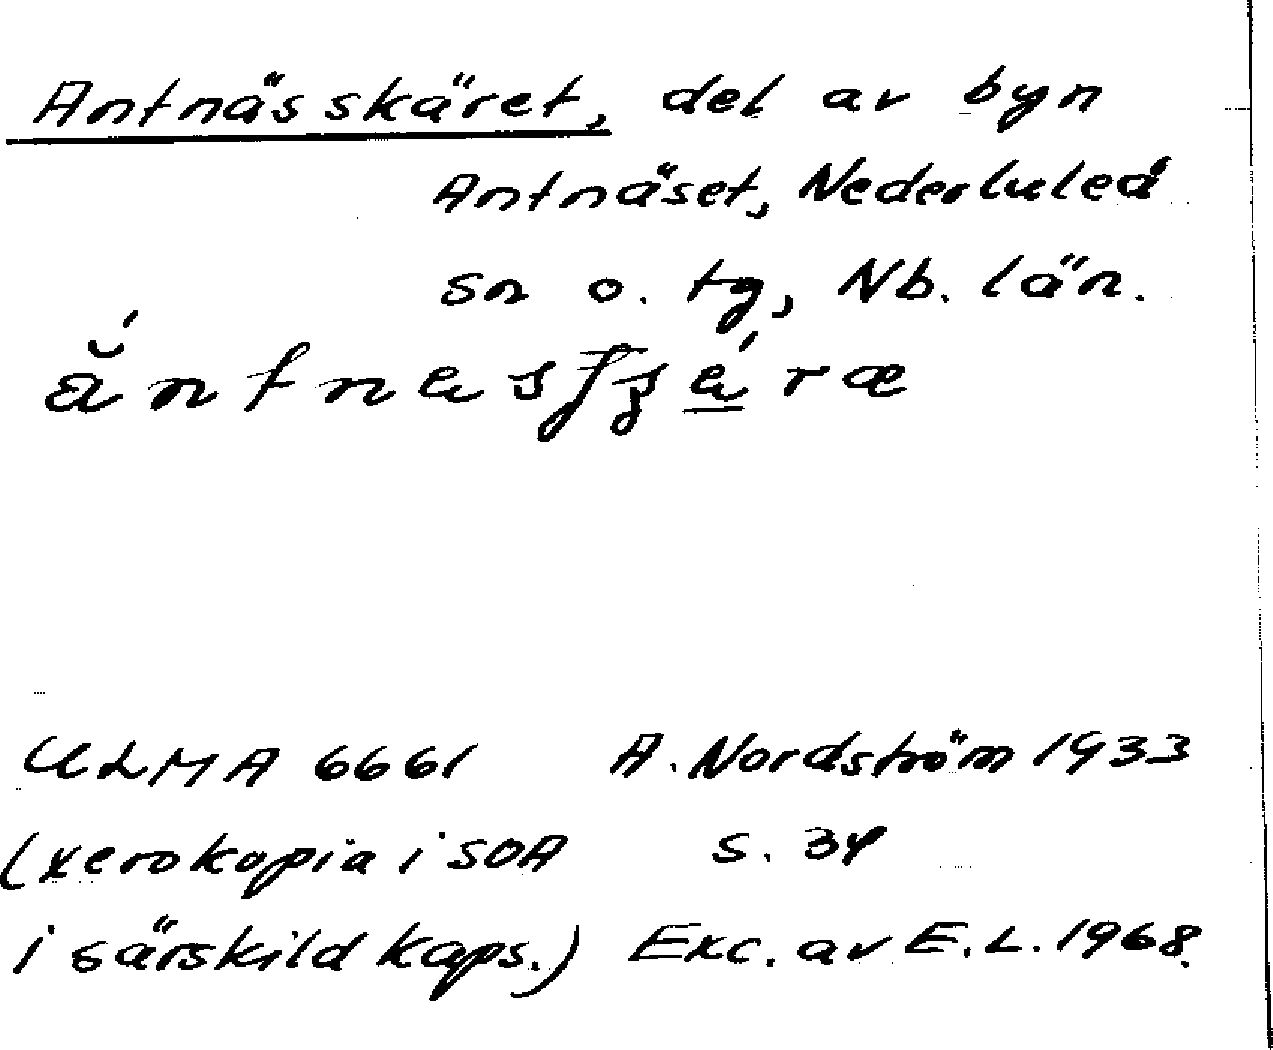 Antnäs skäret, del av byn
Antnäset, Nederluleå
sn o. tg, Nb. län.
ULMA 6661 A. Nordström 1933
(xerokopia i SOA s. 34
i särskild kaps.) Exc. av E.L. 1968.